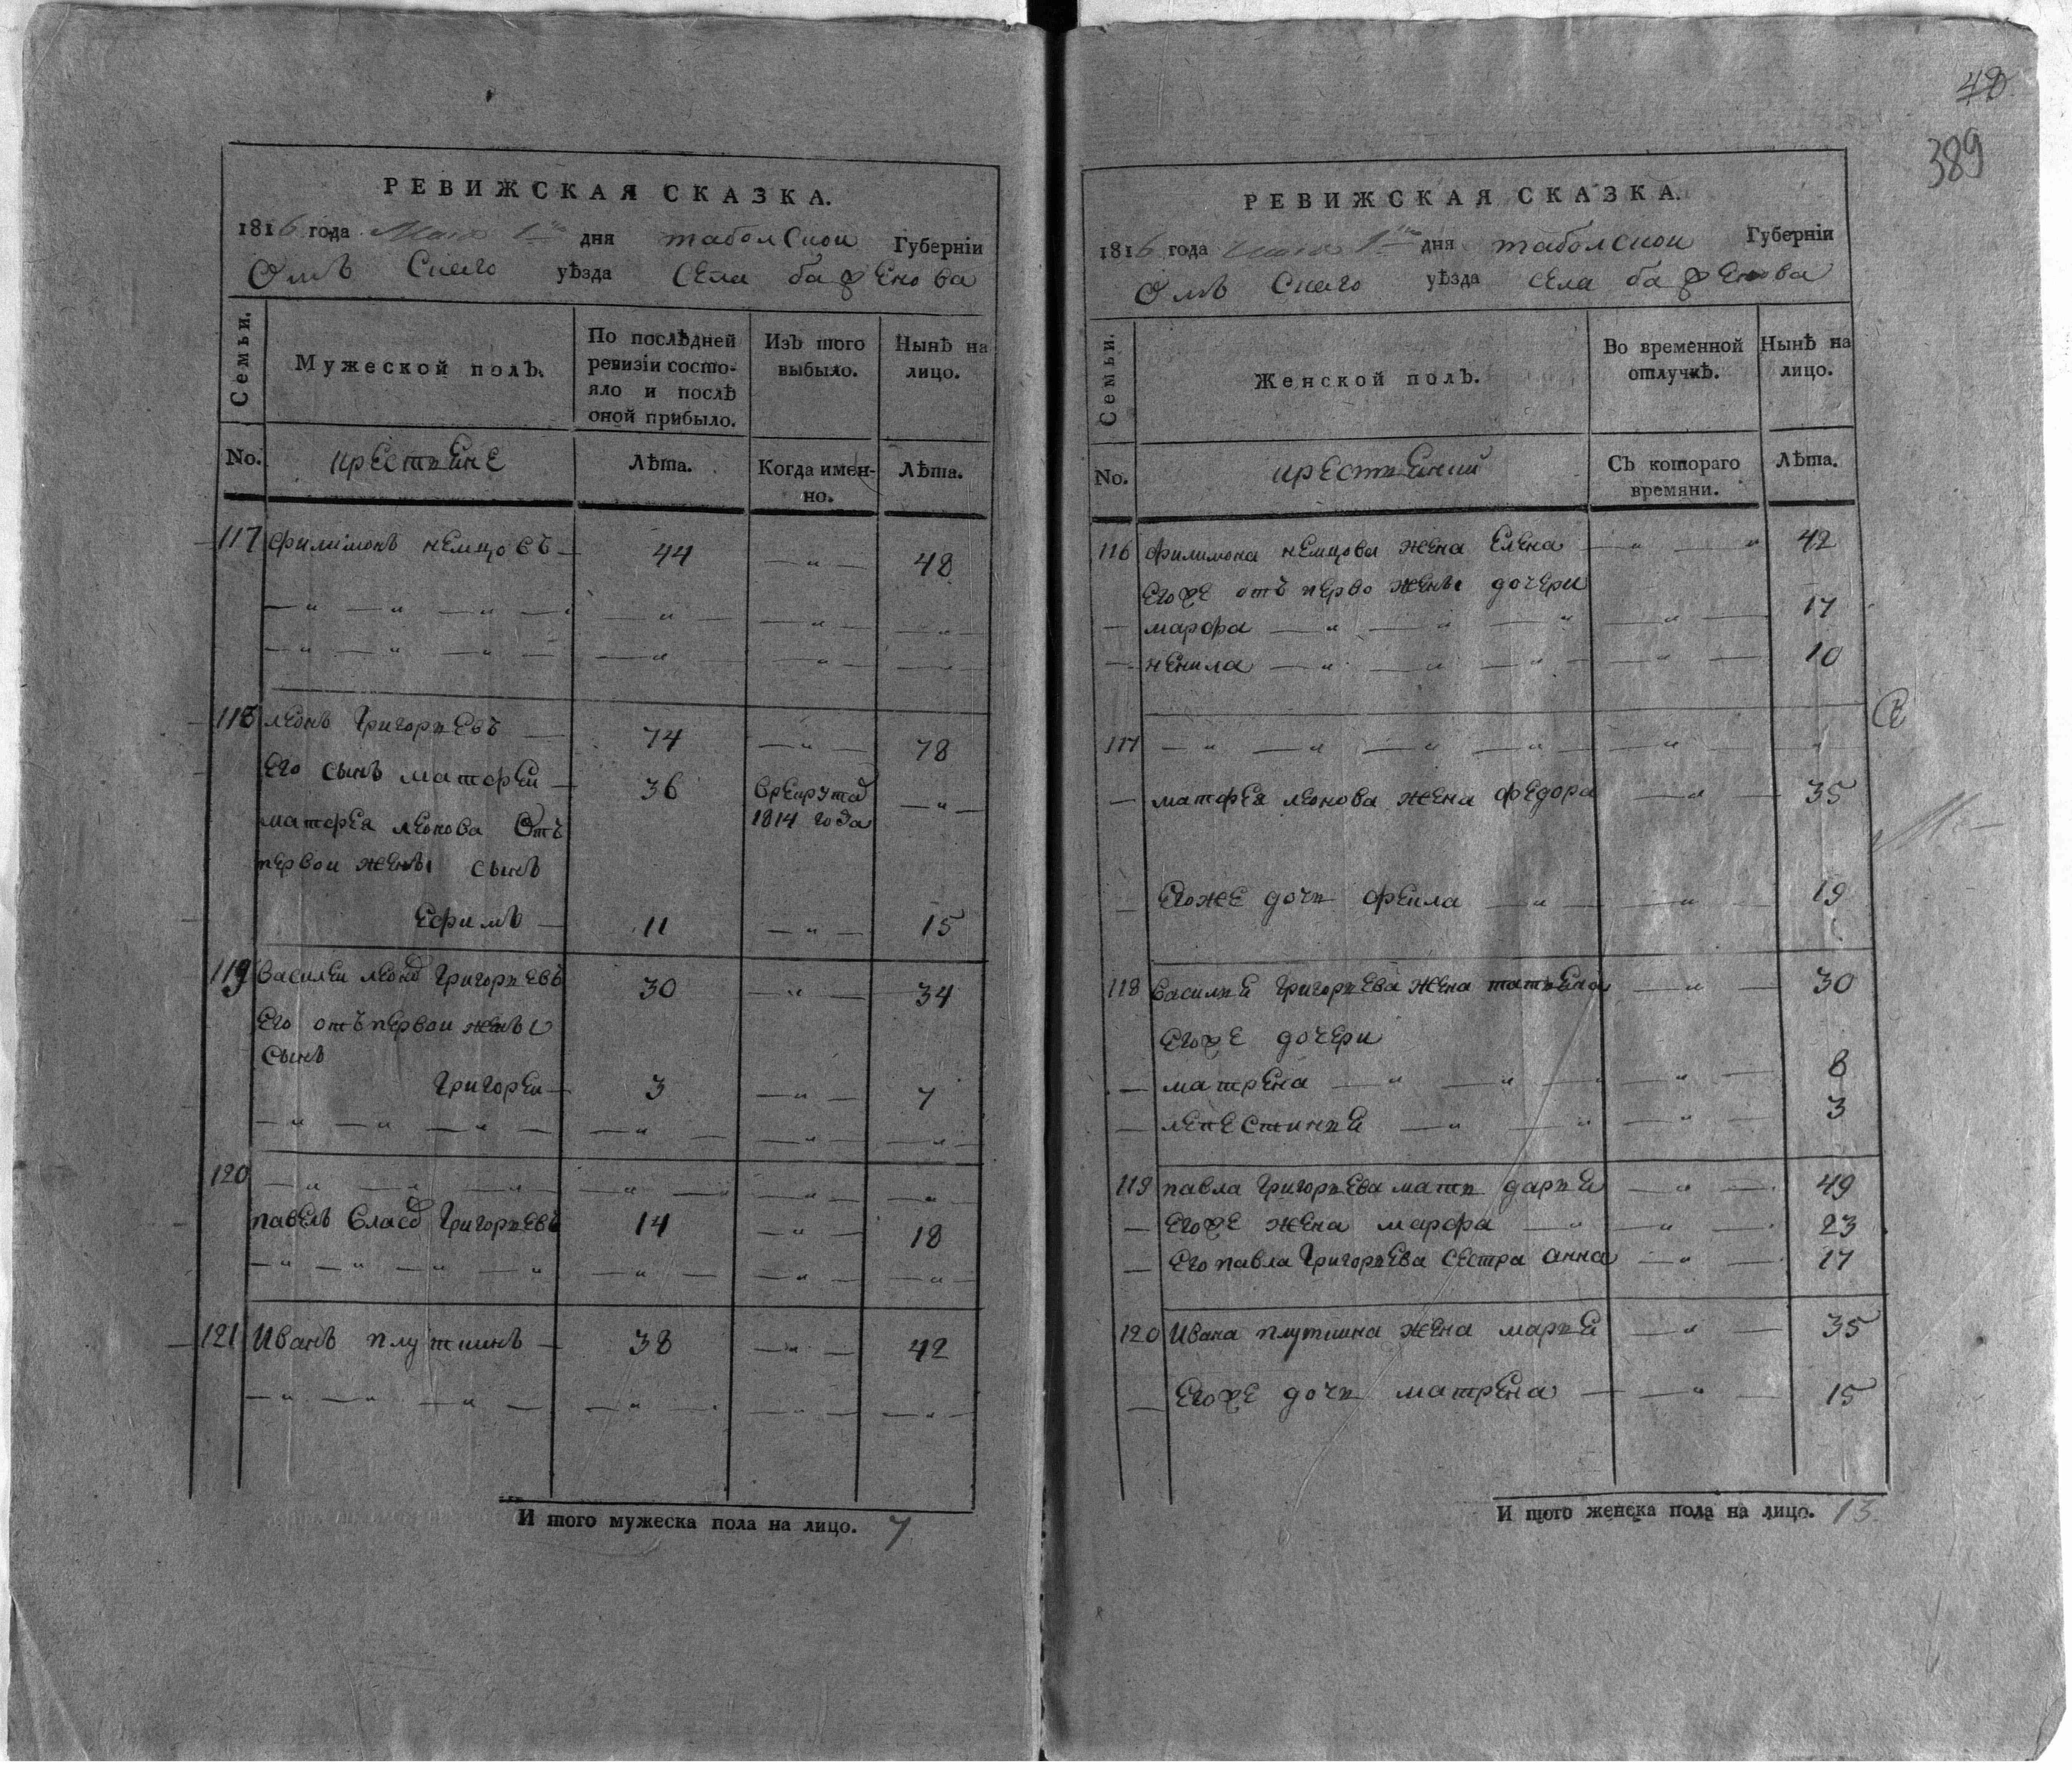 РЕВИЖСКАЯ СКАЗКА.
1816 года Мая 1 дня таболскои Губерніи
Омъ Скаго уѣзда села бажЕнова
Семьи.
Мужеской полъ.
По послѣдней ревизіи состояло и послѣ оной прибыло.
Изъ того выбыло.
Нынѣ на лицо.
No.
крЕстьЯнЕ
Лѣта.
Когда имен-
но.
Лѣта.
117 филимонъ нЕмцовъ — 44 — " — 48
— " — " — " — " — — " — — " —
— " — " — " — — " — — " — — " —
118 лЕонъ григорьЕвъ — 74 — " — 78
Его сынъ матфЕи — 36 врЕкрута — " —
1814 года
матфЕя лЕонова Отъ
пЕрвои жЕнЫ сынъ
Ефимъ — 11 — " — 15
119 василЕи лЕоновъ григорьЕвъ 30 — " — 34
Его отъ пЕрвои жЕнЫ
сынъ
григорЕи — 3 — " — 7
— " — " — " — — " — — " — — " —
120 — " — " — " — — " — — " — — " —
павЕлъ власовъ григорьЕвъ 14 — " — 18
— " — " — " — " — " — — " — — " —
121 Иванъ плуткинъ — 38 — " — 42
— " — " — " — — " — — " — — " —
И того мужеска пола на лицо. 7
40
389
РЕВИЖСКАЯ СКАЗКА.
1816 года 1 дня таболскои Губерніи
Омъ Скаго уѣзда сЕла бажЕнова
Семьи.
Женской полъ.
Во временной отлучкѣ.
Нынѣ на лицо.
No.
крЕстьЯнки
Съ котораго
времяни.
Лѣта.
116 филимона нЕмцова жЕна ЕлЕна — " — " 42
ЕгожЕ отъ пЕрво жЕнЫ дочЕри
— марфа — " — " — " " — 17
— нЕнила — " — " — " — " — 10
117 — " — " — " — " — " — "
— матфЕя лЕонова жЕна фЕдора — " — 35
— ЕгожЕ дочь фЕкла — " — " — 19
118 василья григорьЕва жЕна татьЯна — " — 30
ЕгожЕ дочЕри
— матрЕна — " — " — " — " — 8
— — " — " — " — 3
119 павла григорьЕва мать дарьЯ — " — 49
— ЕгожЕ жЕна марфа — " — " — 23
— Его павла григорьЕва сЕстра анна — " — 17
120 Ивана плуткина жЕна марьЯ — " — 35
— ЕгожЕ дочь матрЕна — — " — 15
И того женска пола на лицо. 13.